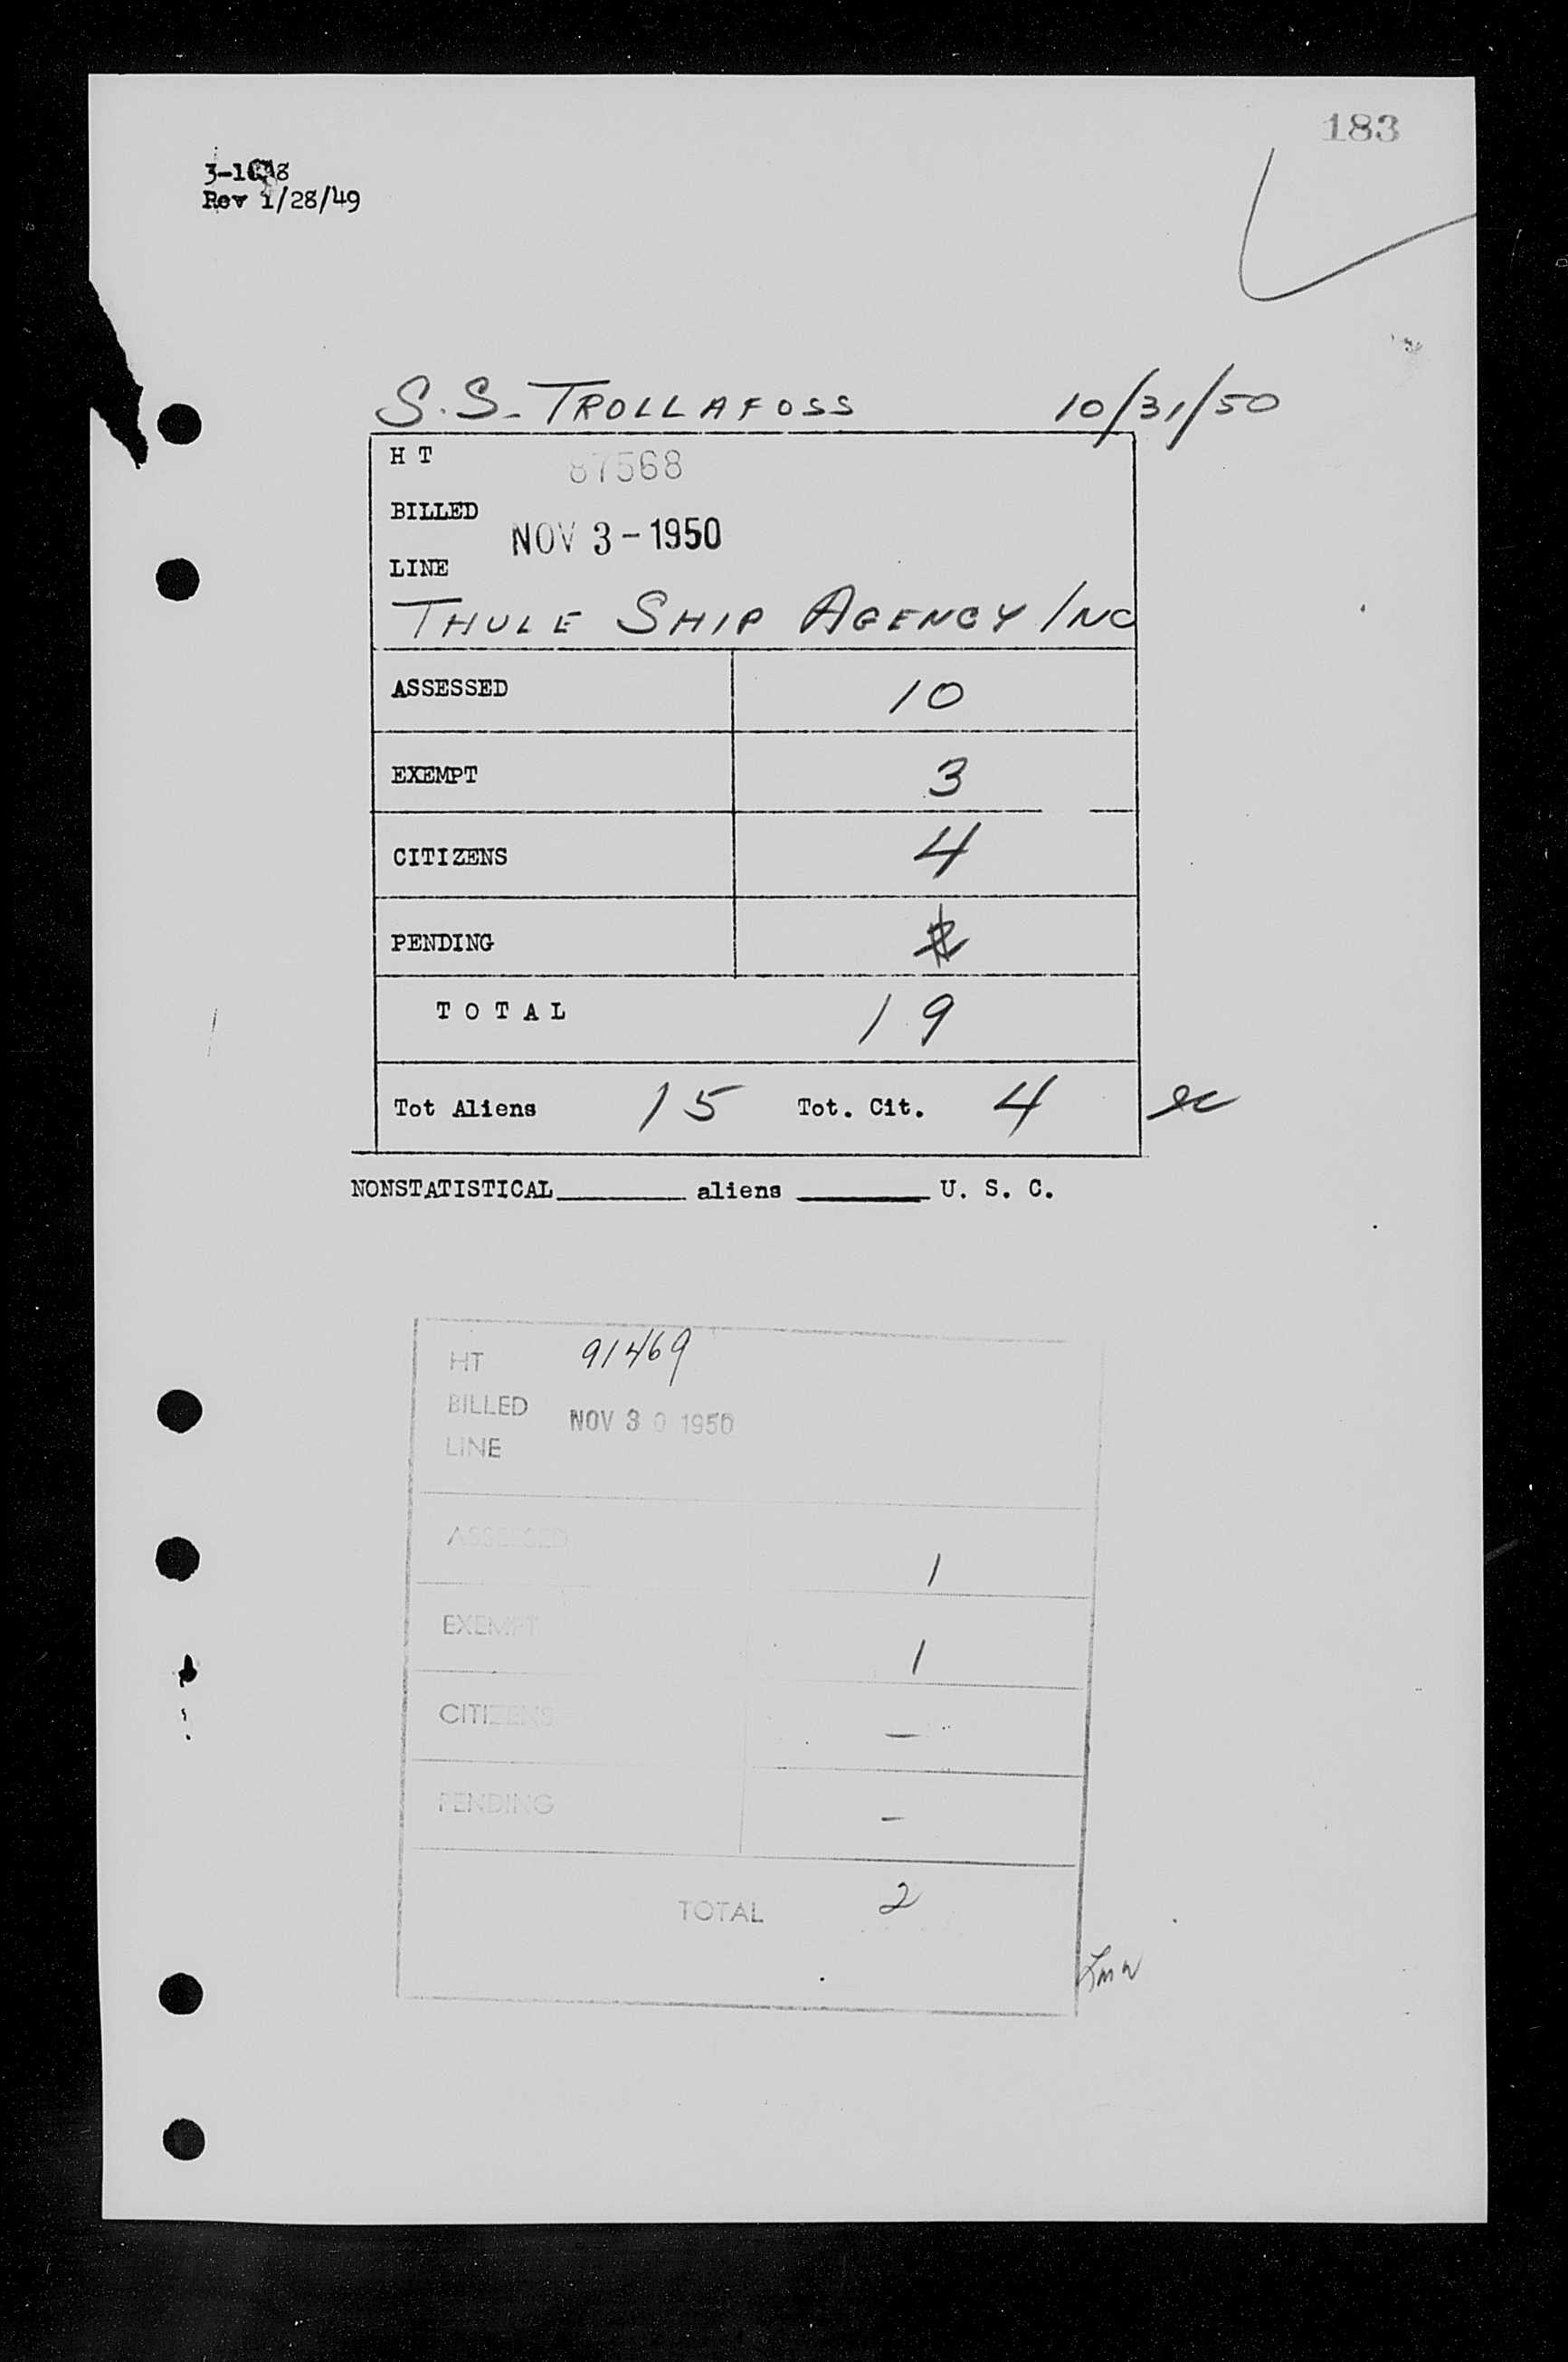 183
Rev 1/28/49
S.S. TROLLAFOSS 10/31/50
H T 87568
BILLED
NOV 3 - 1950
LINE
THULE SHIP AGENCY INC
ASSESSED 10
EXEMPT 3
CITIZENS 4
PENDING 2
TOTAL 19
Tot Aliens 15 Tot. Cit. 4
NONSTATISTICAL aliens U. S. C.
HT 91469
BILLED NOV 30 1950
LINE
ASSESSED 1
EXEMPT 1
CITIZENS -
PENDING -
TOTAL 2